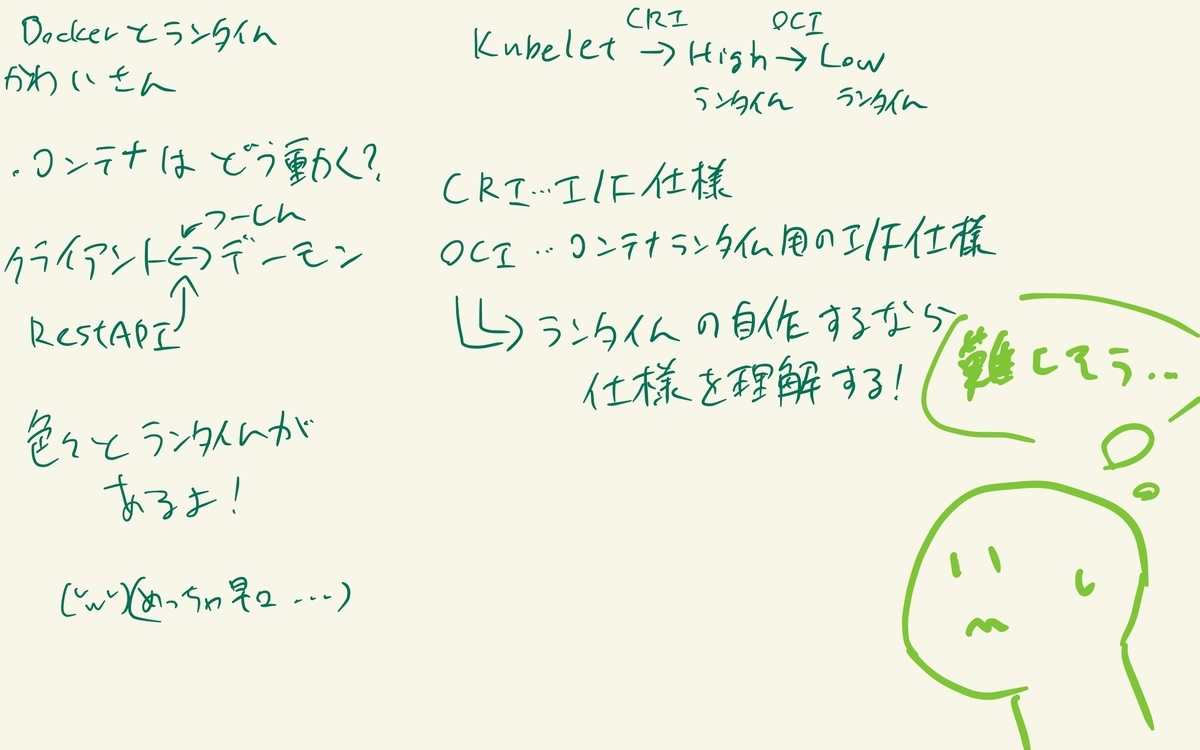 Dockerとランタイム
かわいさん
・コンテナはどう動く?
つーしん
クライアント↔デーモン
RestAPI
色々とランタイムが
あるよ!
(˘ω˘)(めっちゃ早口…)
CRI OCI
Kubelet → High → Low
ランタイム ランタイム
CRI…I/F仕様
OCI…コンテナランタイム用のI/F仕様
ランタイムの自作するなら
仕様を理解する!
難しそう…